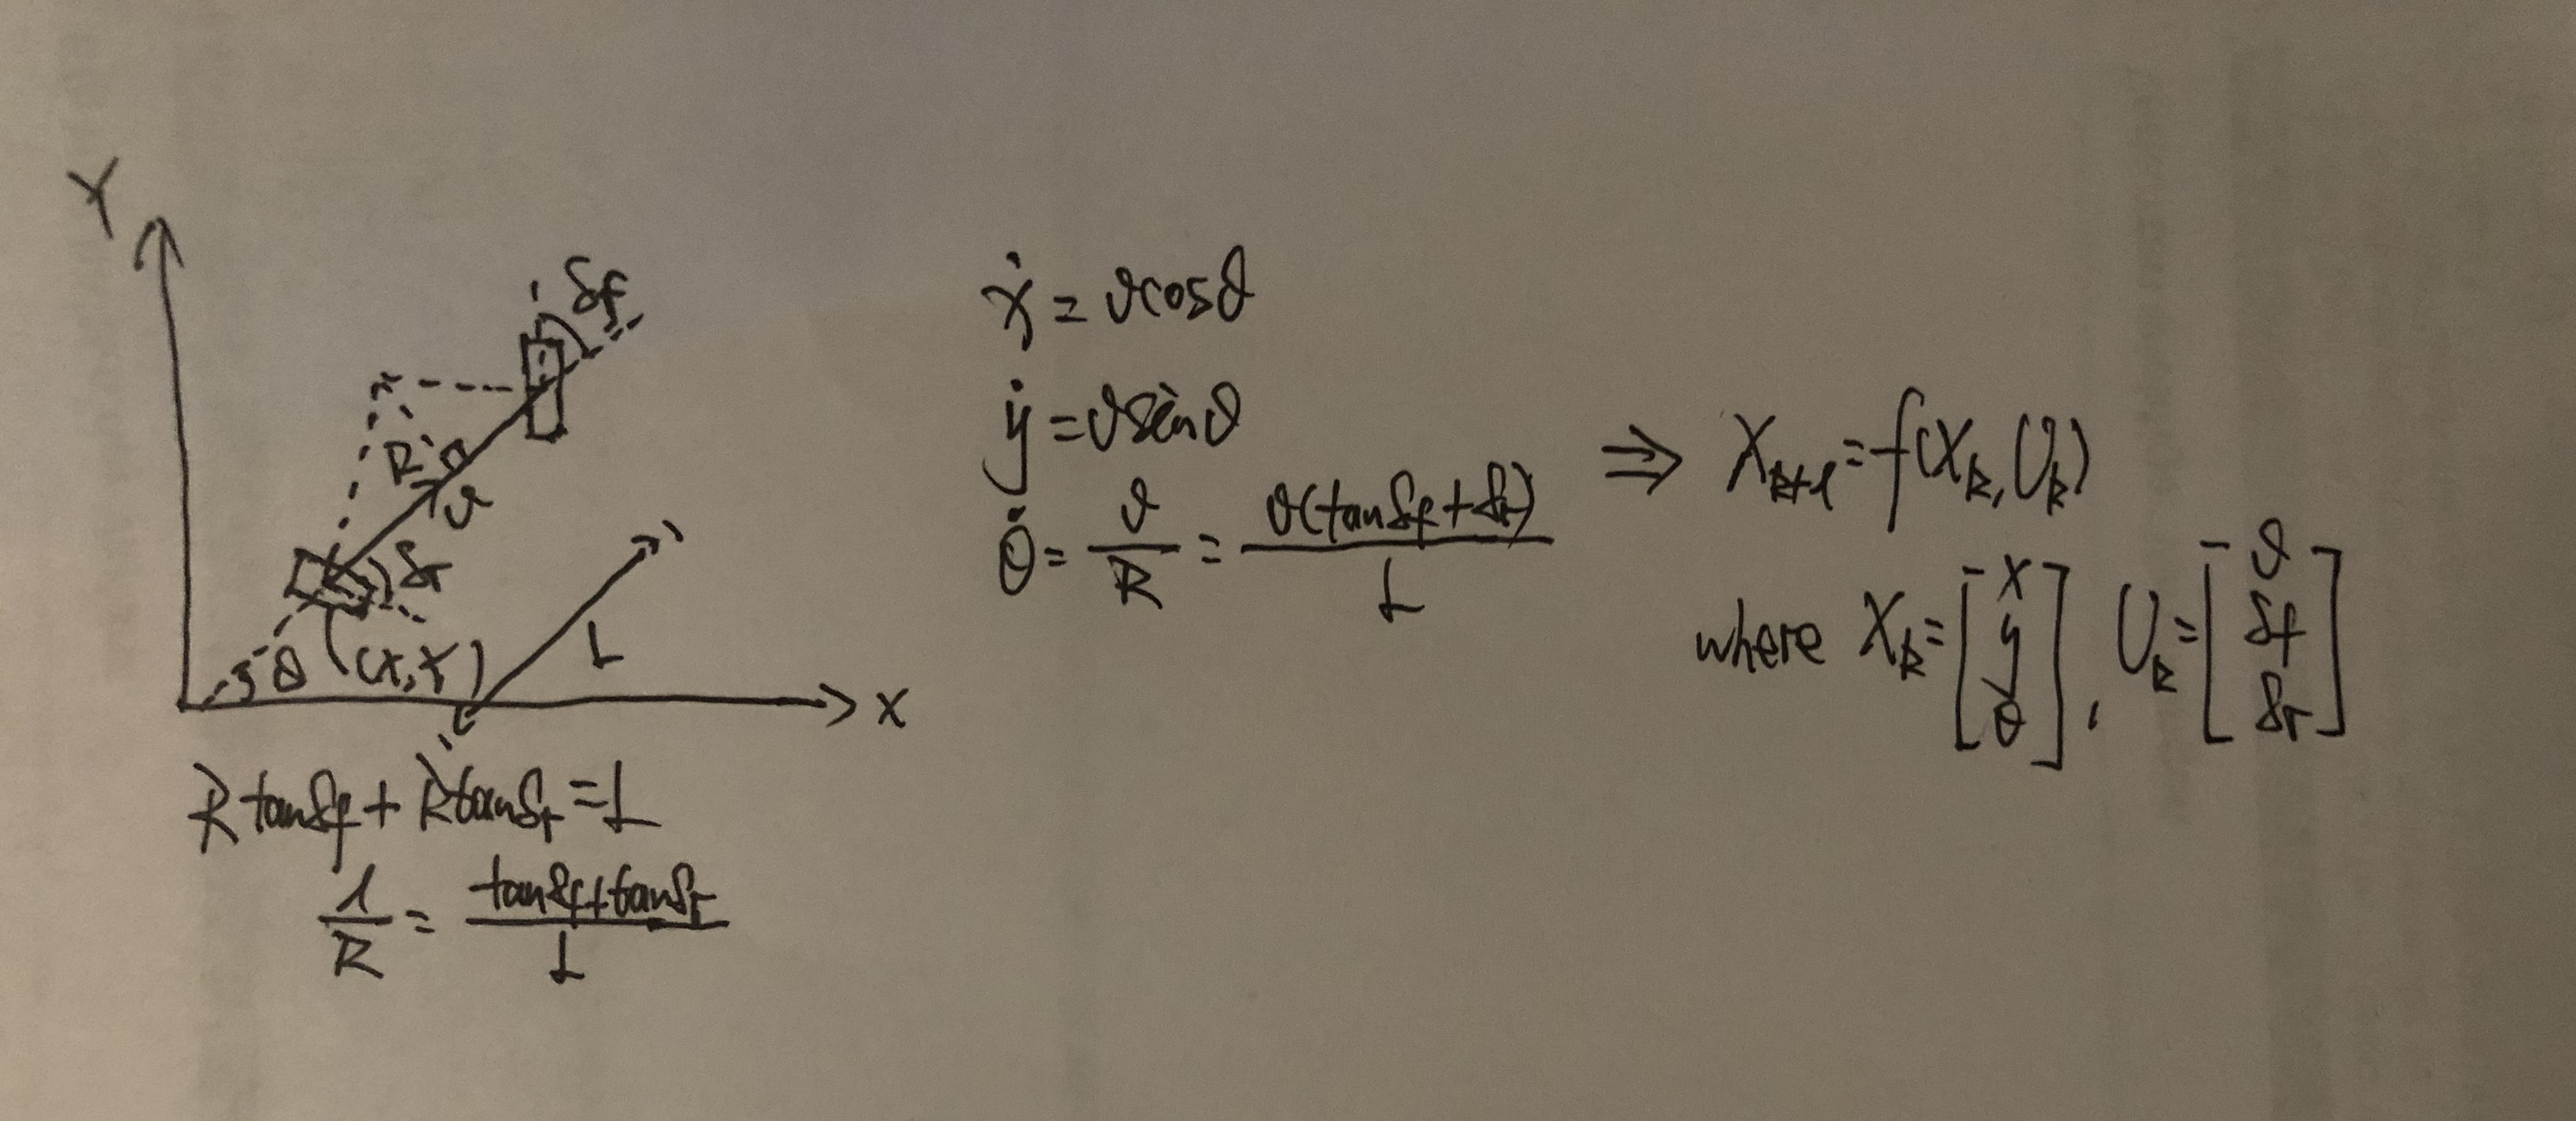 Y
δf
R
v
δr
θ
(x, y)
L
X
R tanδf + R tanδr = L
1/R = (tanδf + tanδr)/L
ẋ = v cosθ
ẏ = v sinθ
θ̇ = v/R = v(tanδf + δr)/L
⇒ X_{k+1} = f(X_k, U_k)
where X_k = [x y θ], U_k = [v δf δr]